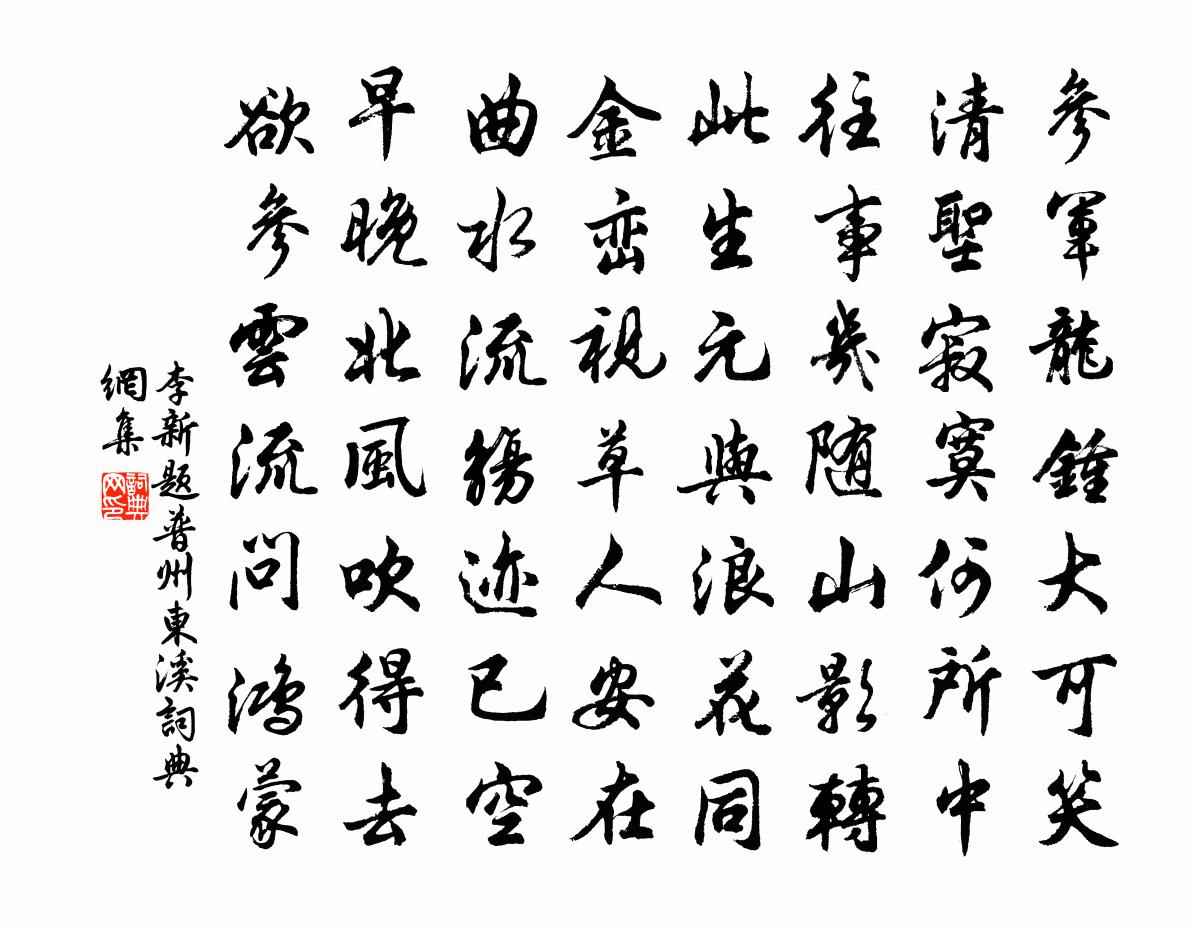 參軍龍鍾大可笑
清聖寂寞何所中
往事幾随山影轉
此生元與浪花同
金巒視草人安在
曲水流觴迹已空
早晚北風吹得去
欲參雲流問鴻蒙
李新題普州東溪詞典
網集
詞典
网印